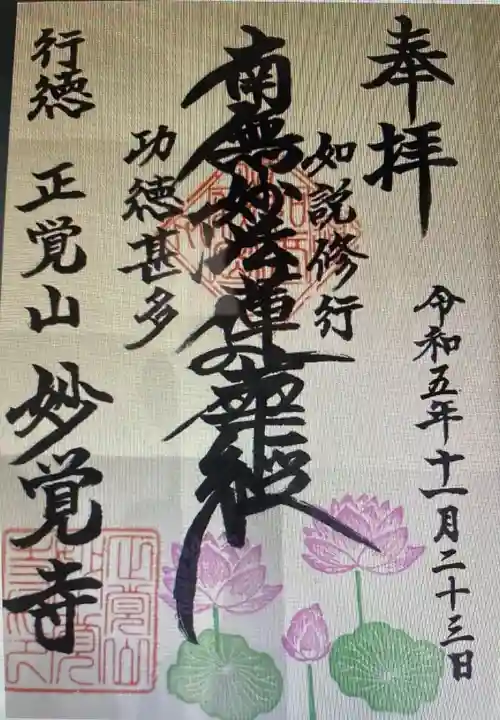 奉拝
令和五年十一月二十三日
如説修行
南無妙法蓮華経
功徳甚多
行徳 正覚山 妙覚寺